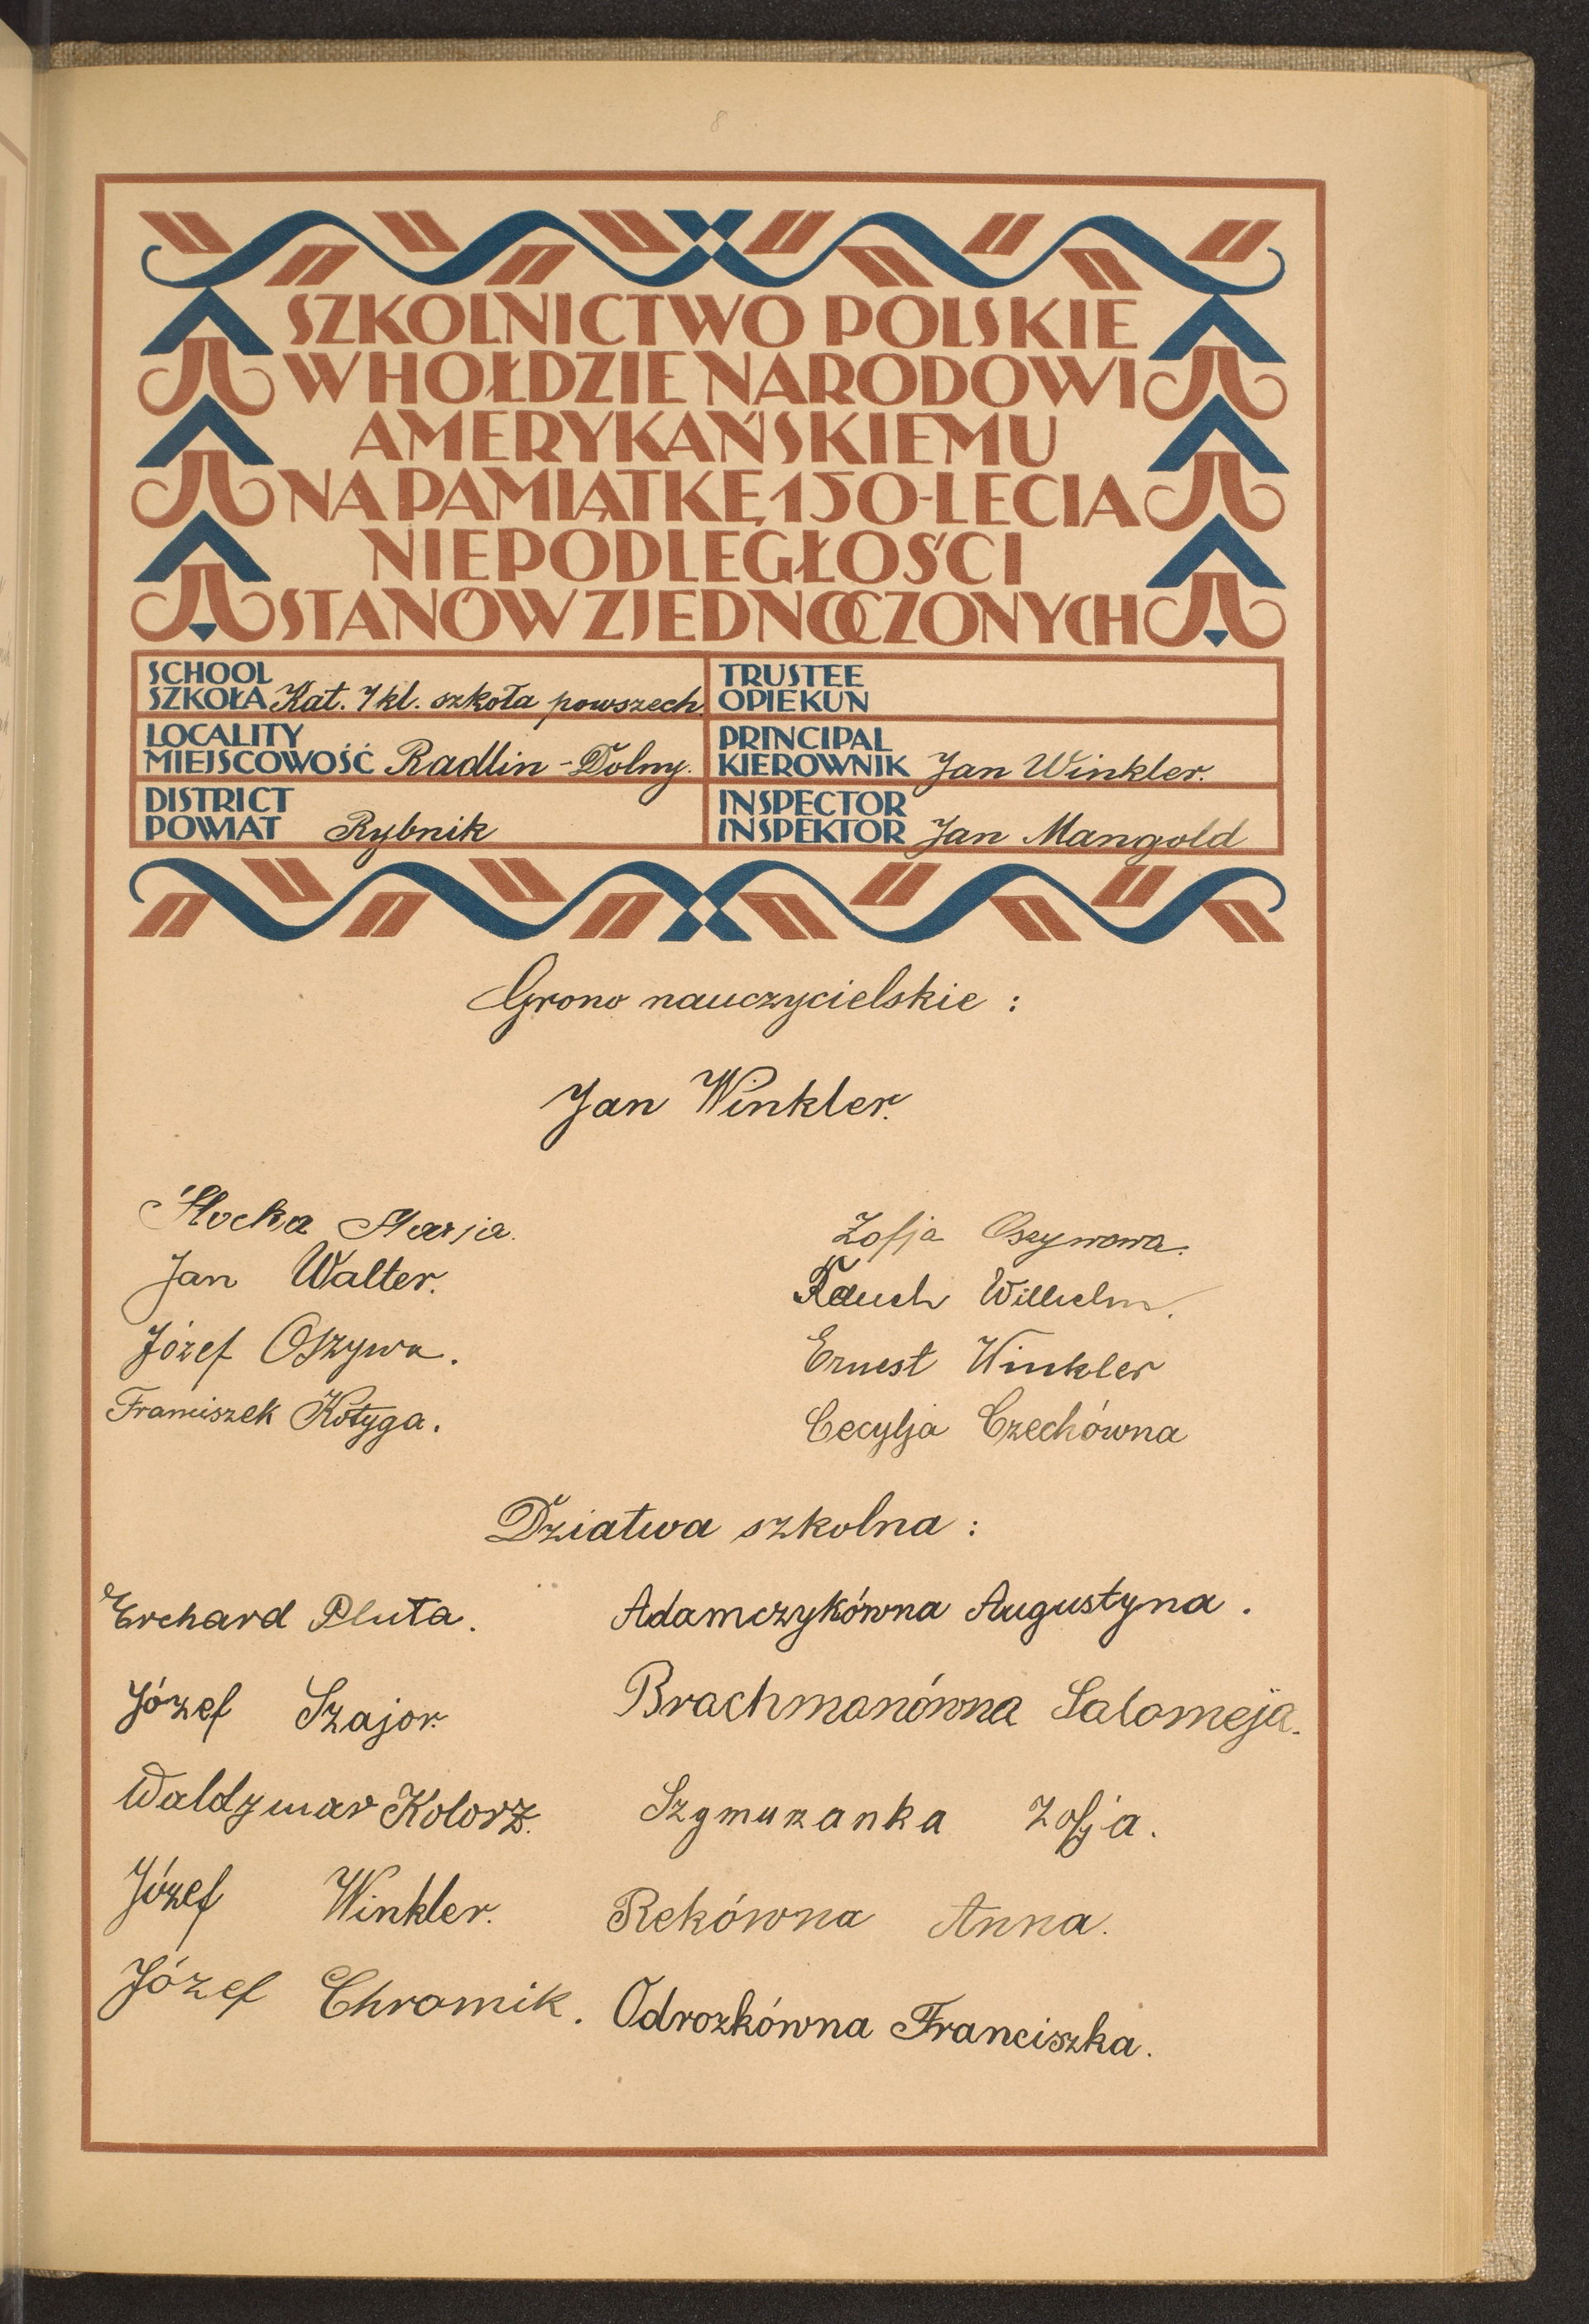 8
SZKOLNICTWO POLSKIE
W HOŁDZIE NARODOWI
AMERYKAŃSKIEMU
NA PAMIĄTKĘ 150-LECIA
NIEPODLEGŁOŚCI
STANÓW ZJEDNOCZONYCH
SCHOOL
SZKOŁA Kat. 7 kl. szkoła powszech.
TRUSTEE
OPIEKUN
LOCALITY
MIEJSCOWOŚĆ Radlin-Dolny.
PRINCIPAL
KIEROWNIK Jan Winkler.
DISTRICT
POWIAT Rybnik
INSPECTOR
INSPEKTOR Jan Mangold
Grono nauczycielskie :
Jan Winkler.
Marja.
Zofja Oszywowa.
Jan Walter.
Rauch Wilhelm.
Józef Oszywa.
Ernest Winkler
Franciszek Kotyga.
Cecylja Czechówna
Dziatwa szkolna :
Erchard Pluta.
Adamczykówna Augustyna.
Józef Szajor.
Brachmanówna Salomeja.
Waldymar Kolorz.
Szymuzanka Zofja.
Józef Winkler.
Rekówna Anna.
Józef Chromik.
Odrozkówna Franciszka.